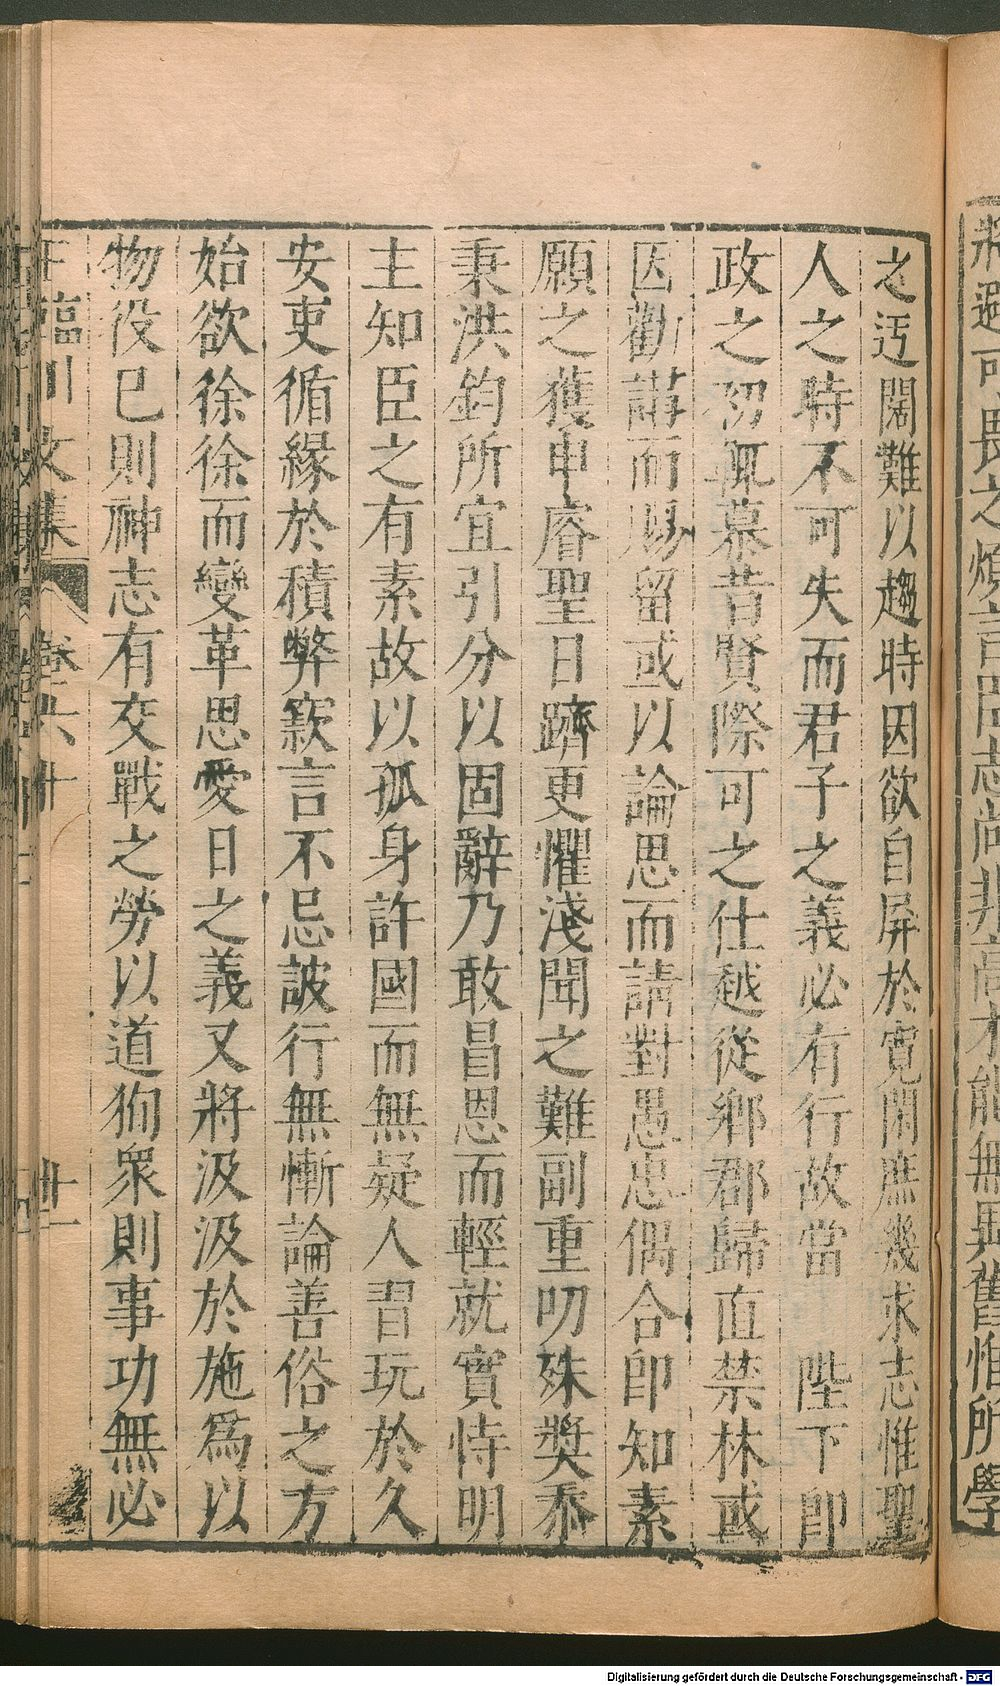 將避可畏之煩言因志尚非高才能無異舊惟所學
之迃闊難以趨時因欲自屏於寬閑庶幾求志惟聖
人之時不可失而君子之義必有行故當　陛下即
政之初輒慕昔賢際可之仕越從鄉郡歸直禁林或
因勸講而賜留或以論思而請對愚忠偶合即知素
願之獲申睿聖日躋更懼淺聞之難副重叨殊獎忝
秉洪鈞所宜引分以固辭乃敢昌恩而輕就實恃明
主知臣之有素故以孤身許國而無疑人習玩於久
安吏循緣於積弊款言不忌詖行無慚論善俗之方
始欲徐徐而變革思愛日之義又將汲汲於施為以
物役已則神志有交戰之勞以道徇衆則事功無必
王臨川文集 卷六十 廿一
Digitalisierung gefördert durch die Deutsche Forschungsgemeinschaft - DFG